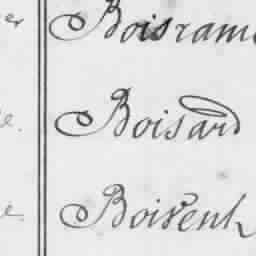 Boisram
Boisard
Boisenh